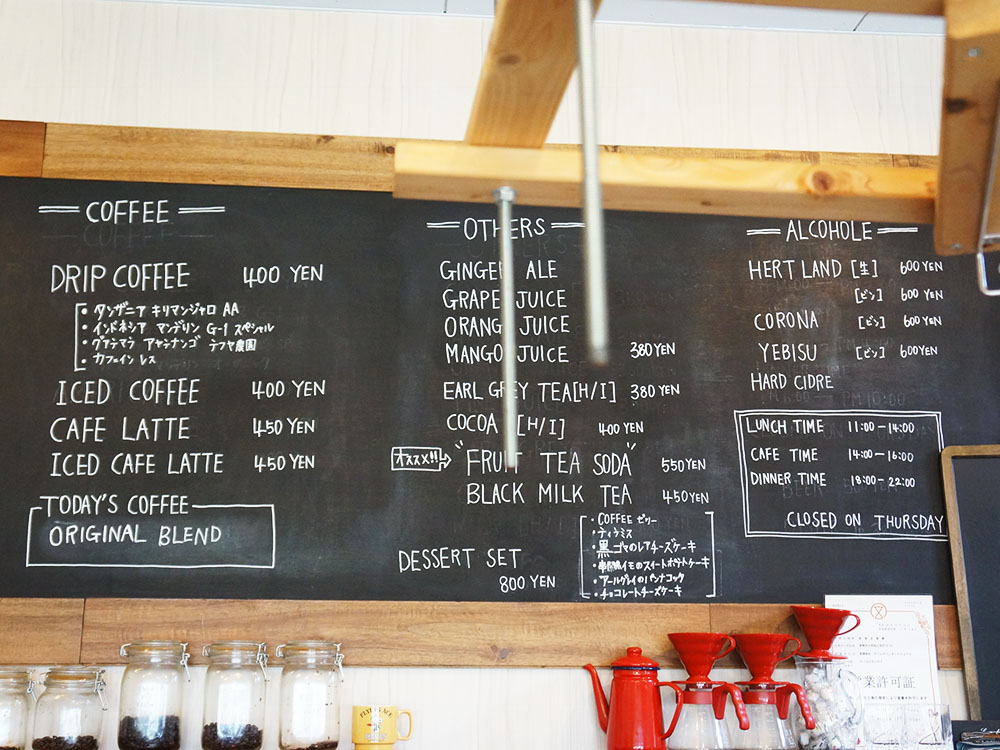 COFFEE
DRIP COFFEE 400 YEN
・タンザニア キリマンジャロ AA
・インドネシア マンデリン G-1 スペシャル
・グアテマラ アヤシナンゴ テフヤ農園
・カフェイン レス
ICED COFFEE 400 YEN
CAFE LATTE 450 YEN
ICED CAFE LATTE 450 YEN
TODAY'S COFFEE
ORIGINAL BLEND
OTHERS
GINGER ALE
GRAPE JUICE
ORANG JUICE
MANGO JUICE 380 YEN
EARL GREY TEA[H/I] 380 YEN
COCOA [H/I] 400 YEN
オススメ!! "FRUIT TEA SODA" 550 YEN
BLACK MILK TEA 450 YEN
DESSERT SET
800 YEN
・COFFEE ゼリー
・ティラミス
・黒ゴマのレアチーズケーキ
イモのスイートポテトケーキ
・アールグレイのパンナコッタ
・チョコレートチーズケーキ
ALCOHOLE
HERTLAND [生] 600 YEN
[ビン] 600 YEN
CORONA [ビン] 600 YEN
YEBISU [ビン] 600 YEN
HARD CIDRE
LUNCH TIME 11:00-14:00
CAFE TIME 14:00-16:00
DINNER TIME 18:00-22:00
CLOSED ON THURSDAY
業許可証